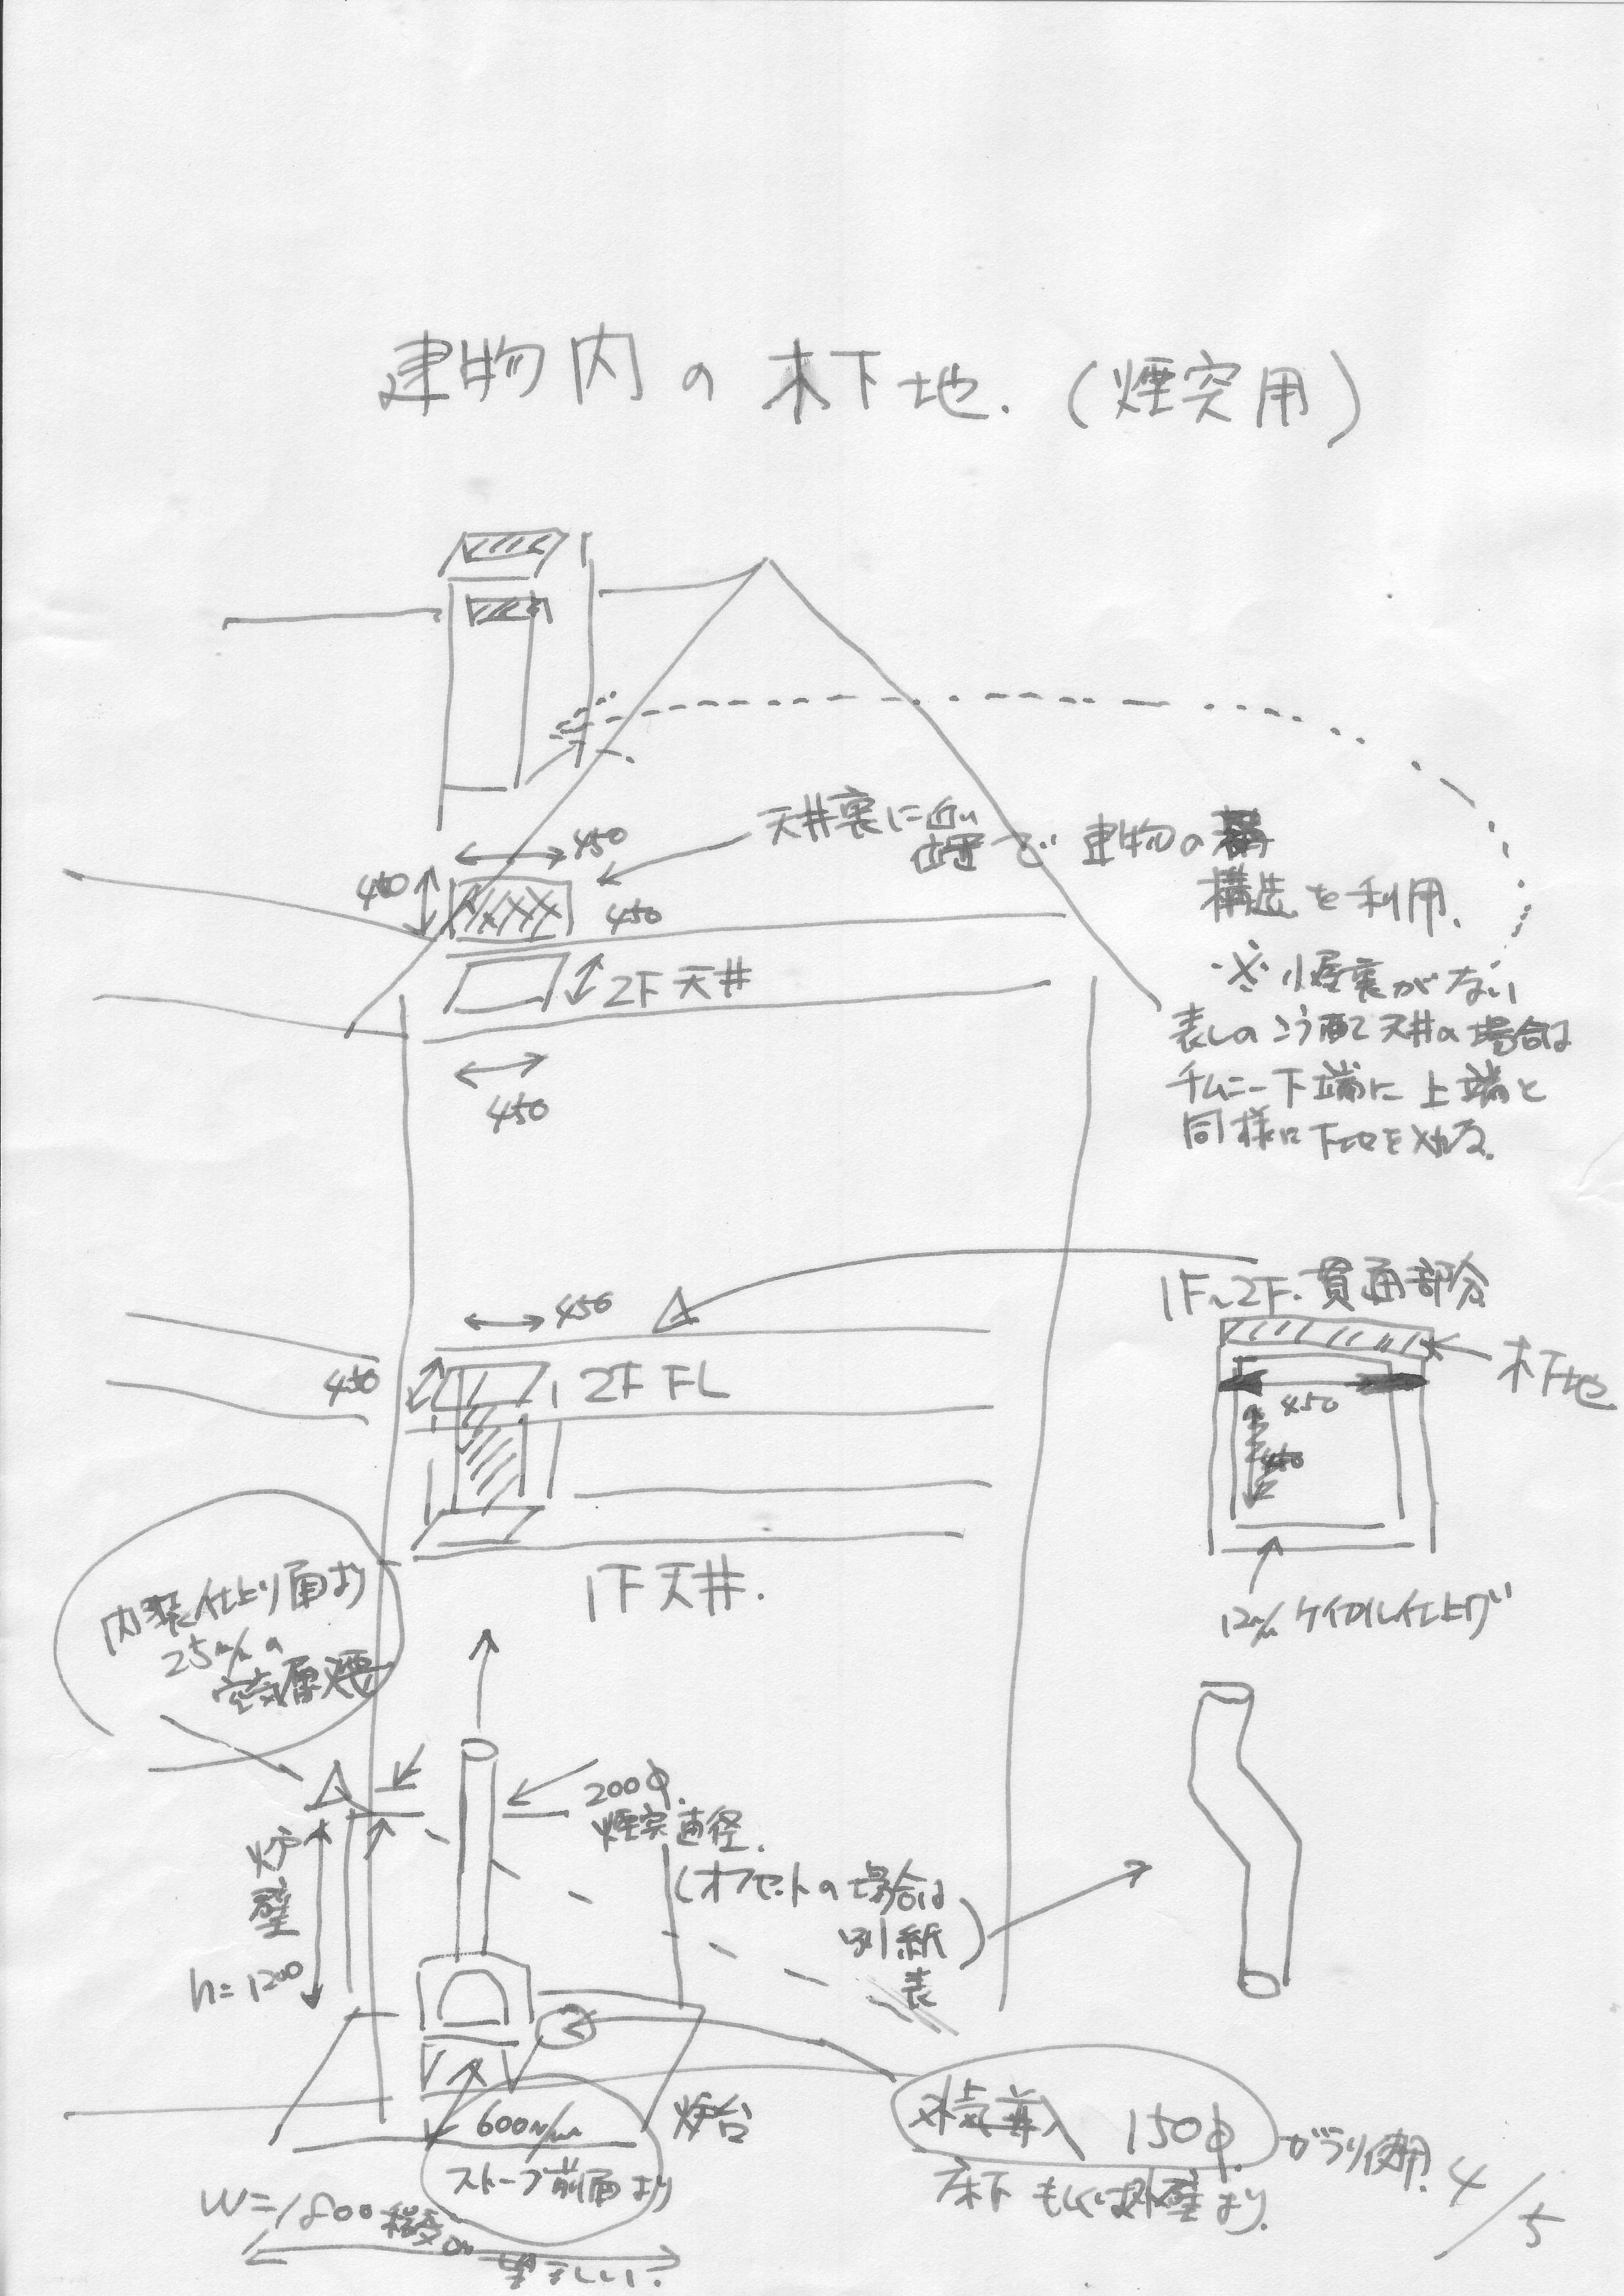 建物内の木下地.(煙突用)
450
450
天井裏に近い
位置で 建物の
構造を利用.
450
2F天井
450
※小屋裏がない
表しのこう配天井の場合は
チムニー下端に上端と
同様に下地を入れる.
1F〜2F.貫通部分
450
450
2F FL
木下地
450
450
1F天井.
12m/m ケイカル仕上げ
内装仕上り面より
25m/mの
空気層必要
200φ.
煙突直径.
(オフセットの場合は
別紙
表)
炉壁
h=1200
600m/m
ストーブ前面より
炉台
外気導入 150φ.
ガラリ使用.
床下もしくは外壁より.
W=1800程度が
望ましい?
4/5